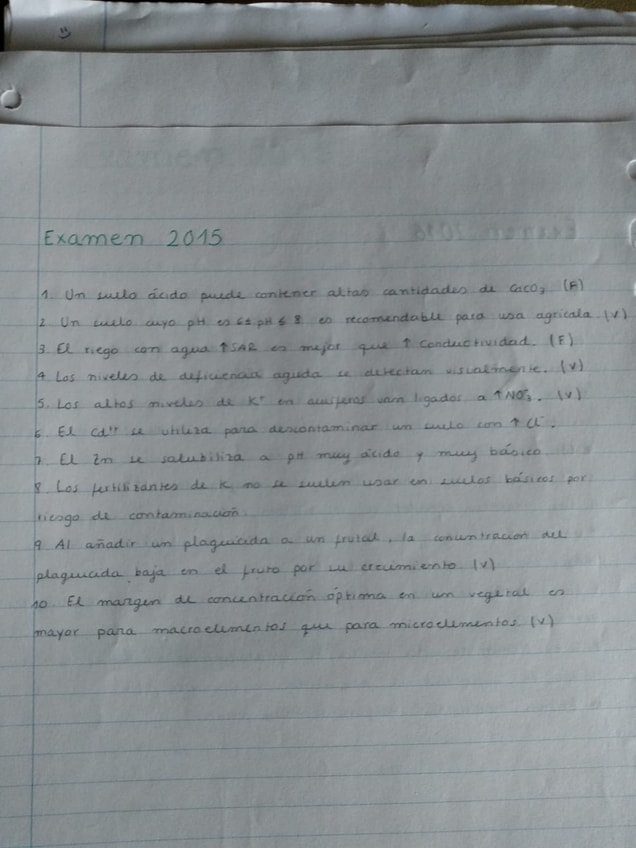 Examen 2015
1. Un suelo ácido puede contener altas cantidades de CaCO3 (F)
2 Un suelo cuyo pH es 6 ≤ pH ≤ 8 es recomendable para uso agrícola (V)
3. El riego con agua ↑SAR es mejor que ↑ conductividad. (F)
4 Los niveles de deficiencia aguda se detectan visualmente. (V)
5. Los altos niveles de K+ en acuíferos van ligados a ↑NO3-. (V)
6 El Cd++ se utiliza para descontaminar un suelo con ↑ Cl-.
7. El Zn se solubiliza a pH muy ácido y muy básico
8 Los fertilizantes de K no se suelen usar en suelos básicos por
riesgo de contaminación.
9. Al añadir un plaguicida a un frutal, la concentración del
plaguicida baja en el fruto por su crecimiento (V)
10. El margen de concentración óptima en un vegetal es
mayor para macroelementos que para microelementos. (V)